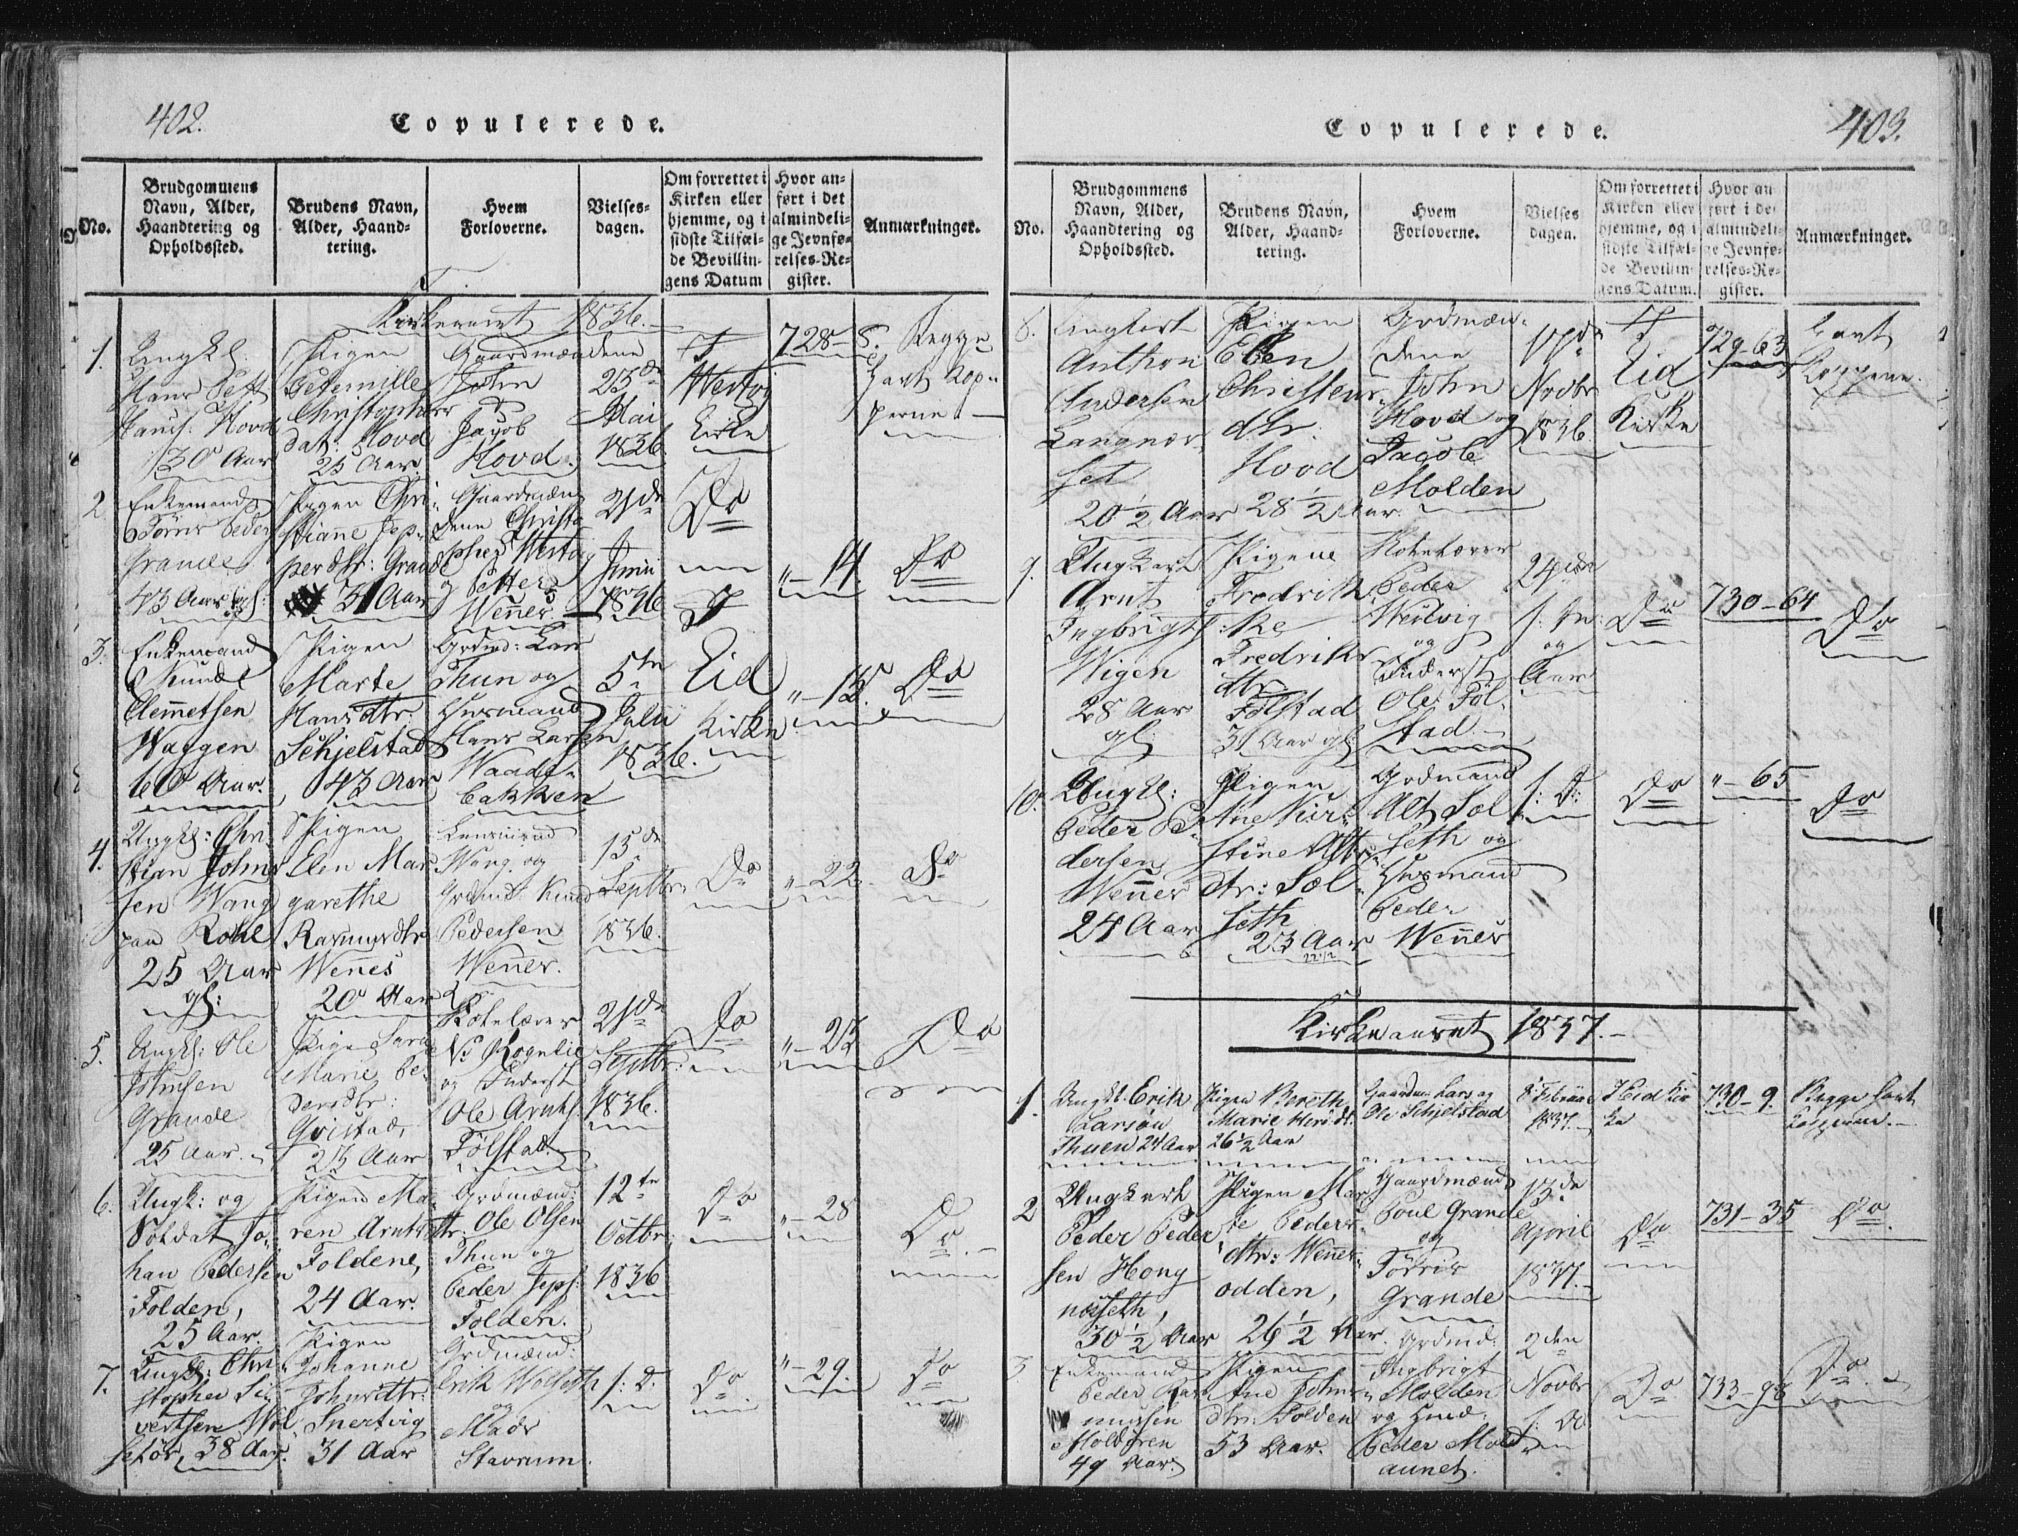 402.
Copulerede.
No.
Brudgommens
Navn, Alder,
Haandtering og
Opholdssted.
Brudens Navn,
Alder, Haand-
tering.
Hvem
Forloverne.
Vielses-
dagen.
Om forrettet i
Kirken eller
hjemme, og i
sidste Tilfæl-
de Bevillin-
gens Datum
Hvor an-
ført i det
almindeli-
ge Jevnfø-
relses-Re-
gister.
Anmærkninger.
Kirkeaaret 1836.
1.
Hans
Hovd
30 Aar
Pigen
Christopher
dat: Hovd
25 Aar
Gaardmændene
John
Jacob
Hovd.
23de
Mai
1836
Kirke
728-8.
Begge
2
Enkemand
Grande
43 Aar gl:
Pigen Chri-
stianne Jep-
perdtr: Grande
31 Aar
Gaardmæn
dene Christo-
pher
og Petter
Wenner
21de
Junii
1836
Do
"-14.
Do
3.
Enkemand
Knud
Clemetsen
Waggen
60 Aar.
Pigen
Marte
Hansdtr:
Schjelstad
43 Aar
Grdmd: Lars
Thun og
Huusmand
Hans Larsen
Waade-
bakken
5te
Julii
1836.
Eid
Kirke
"-15.
Do
4.
Ungk: Chri-
stian Johns
sen Wang
paa Kohl
25 Aar
gl:
Pigen
Elen Mar
garethe
Rasmusdtr
Wenes
20 Aar
Wang og
Grdmd: Knud
Pedersen
Wener.
13de
Septbr
1836.
Do
"-22.
Do
5.
Ungk: Ole
Johnsen
Grande
25 Aar.
Pige Sara
Marie Pe-
dersdtr:
Gristad,
23 Aar
Skolelærer
og
Ole Arnts.
Følstad.
21de
Septbr:
1836.
Do
"-23
Do
6.
Ungk: og
Soldat Jo-
han Pedersen
Folden,
25 Aar.
Pigen Ma-
ren Arntsdtr:
Foldene,
24 Aar.
Grdmænd:
Ole Olsen
Thun og
Peder Jeps:
Folden.
12te
Octbr:
1836
Do
"-28
Do.
7.
Ungk: Chri-
stopher Si-
vertsen Wol-
38 Aar.
Pigen
Johanne
Johnsdtr:
Snertvig
31 Aar
Grdmænd:
Erik Wolseth
og
Mads
Stavrum.
s: D.
Do
"-29.
Do
403.
Copulerede.
No.
Brudgommens
Navn, Alder,
Haandtering og
Opholdssted.
Brudens Navn,
Alder, Haand-
tering.
Hvem
Forloverne.
Vielses
dagen.
Om forrettet i
Kirken eller
hjemme, og i
sidste Tilfæl-
de Bevillin-
gens Datum.
Hvor an
ført i de
almindeli-
ge Jevnfø-
relses-Re-
gister.
Anmærkninger.
8.
Ungkarl
Anthon
Andersen
Langnæs-
set
20 1/2 Aar
Pigen
Elen
Christens-
dtr:
Hovd
28 1/2 Aar.
Grdmæn-
dene
John
Hovd og
Jacob
Molden
17de
Novbr
1836
Eid
Kirke
729-63
9.
Ungkarl
Arnt
Ingbrigts
Wigen
28 Aar
gl:
Pigene
Fredrik-
ke
Fredriks
dtr
Følstad
31 Aar gl:
Skolelærer
Peder
og
Inderst
Ole Føl-
stad.
24de
og
Aar
Do
730-64
Do
10.
Ungk:
Peder Pe-
dersen
Wenner
24 Aar
Pigen
Ane Kir-
stine Alts
dtr: Sæl-
seth
23 Aar
22 1/2
Grdmand
Alt Sæl
seth og
Huusmand
Peder
Wenner
s: D:
Do
"-65
Do
Kirkeaaret 1837.-
1.
Ungk: Erik
Larsøn
Thuen 24 Aar
Pigen Bereth
Marie
26 1/2 Aar
Gaardmd: Lars og
Ole Schjelstad
8 Februar
1837.
I Eid Kir
ke
730-9.
Begge havt
Kopperne.
2
Ungkarl
Peder Peder-
sen Hong
næsseth,
30 1/2 Aar
Pigen Mar
te Peders-
dtr: Wener-
odden,
26 1/2 Aar.
Gaardmænd
Poul Grande
og
Grande
13de
April
1837.
Do
731-35
Do.
3
Enkemand
Peder Ras
mussen
49 Aar.
Pigen
Ane Johns-
dtr: Folden
53 Aar.
Grdmd:
Ingbrigt
Molden
og
Peder Mold
aunet.
2den
Novbr
s: D
Do
733-98
Do